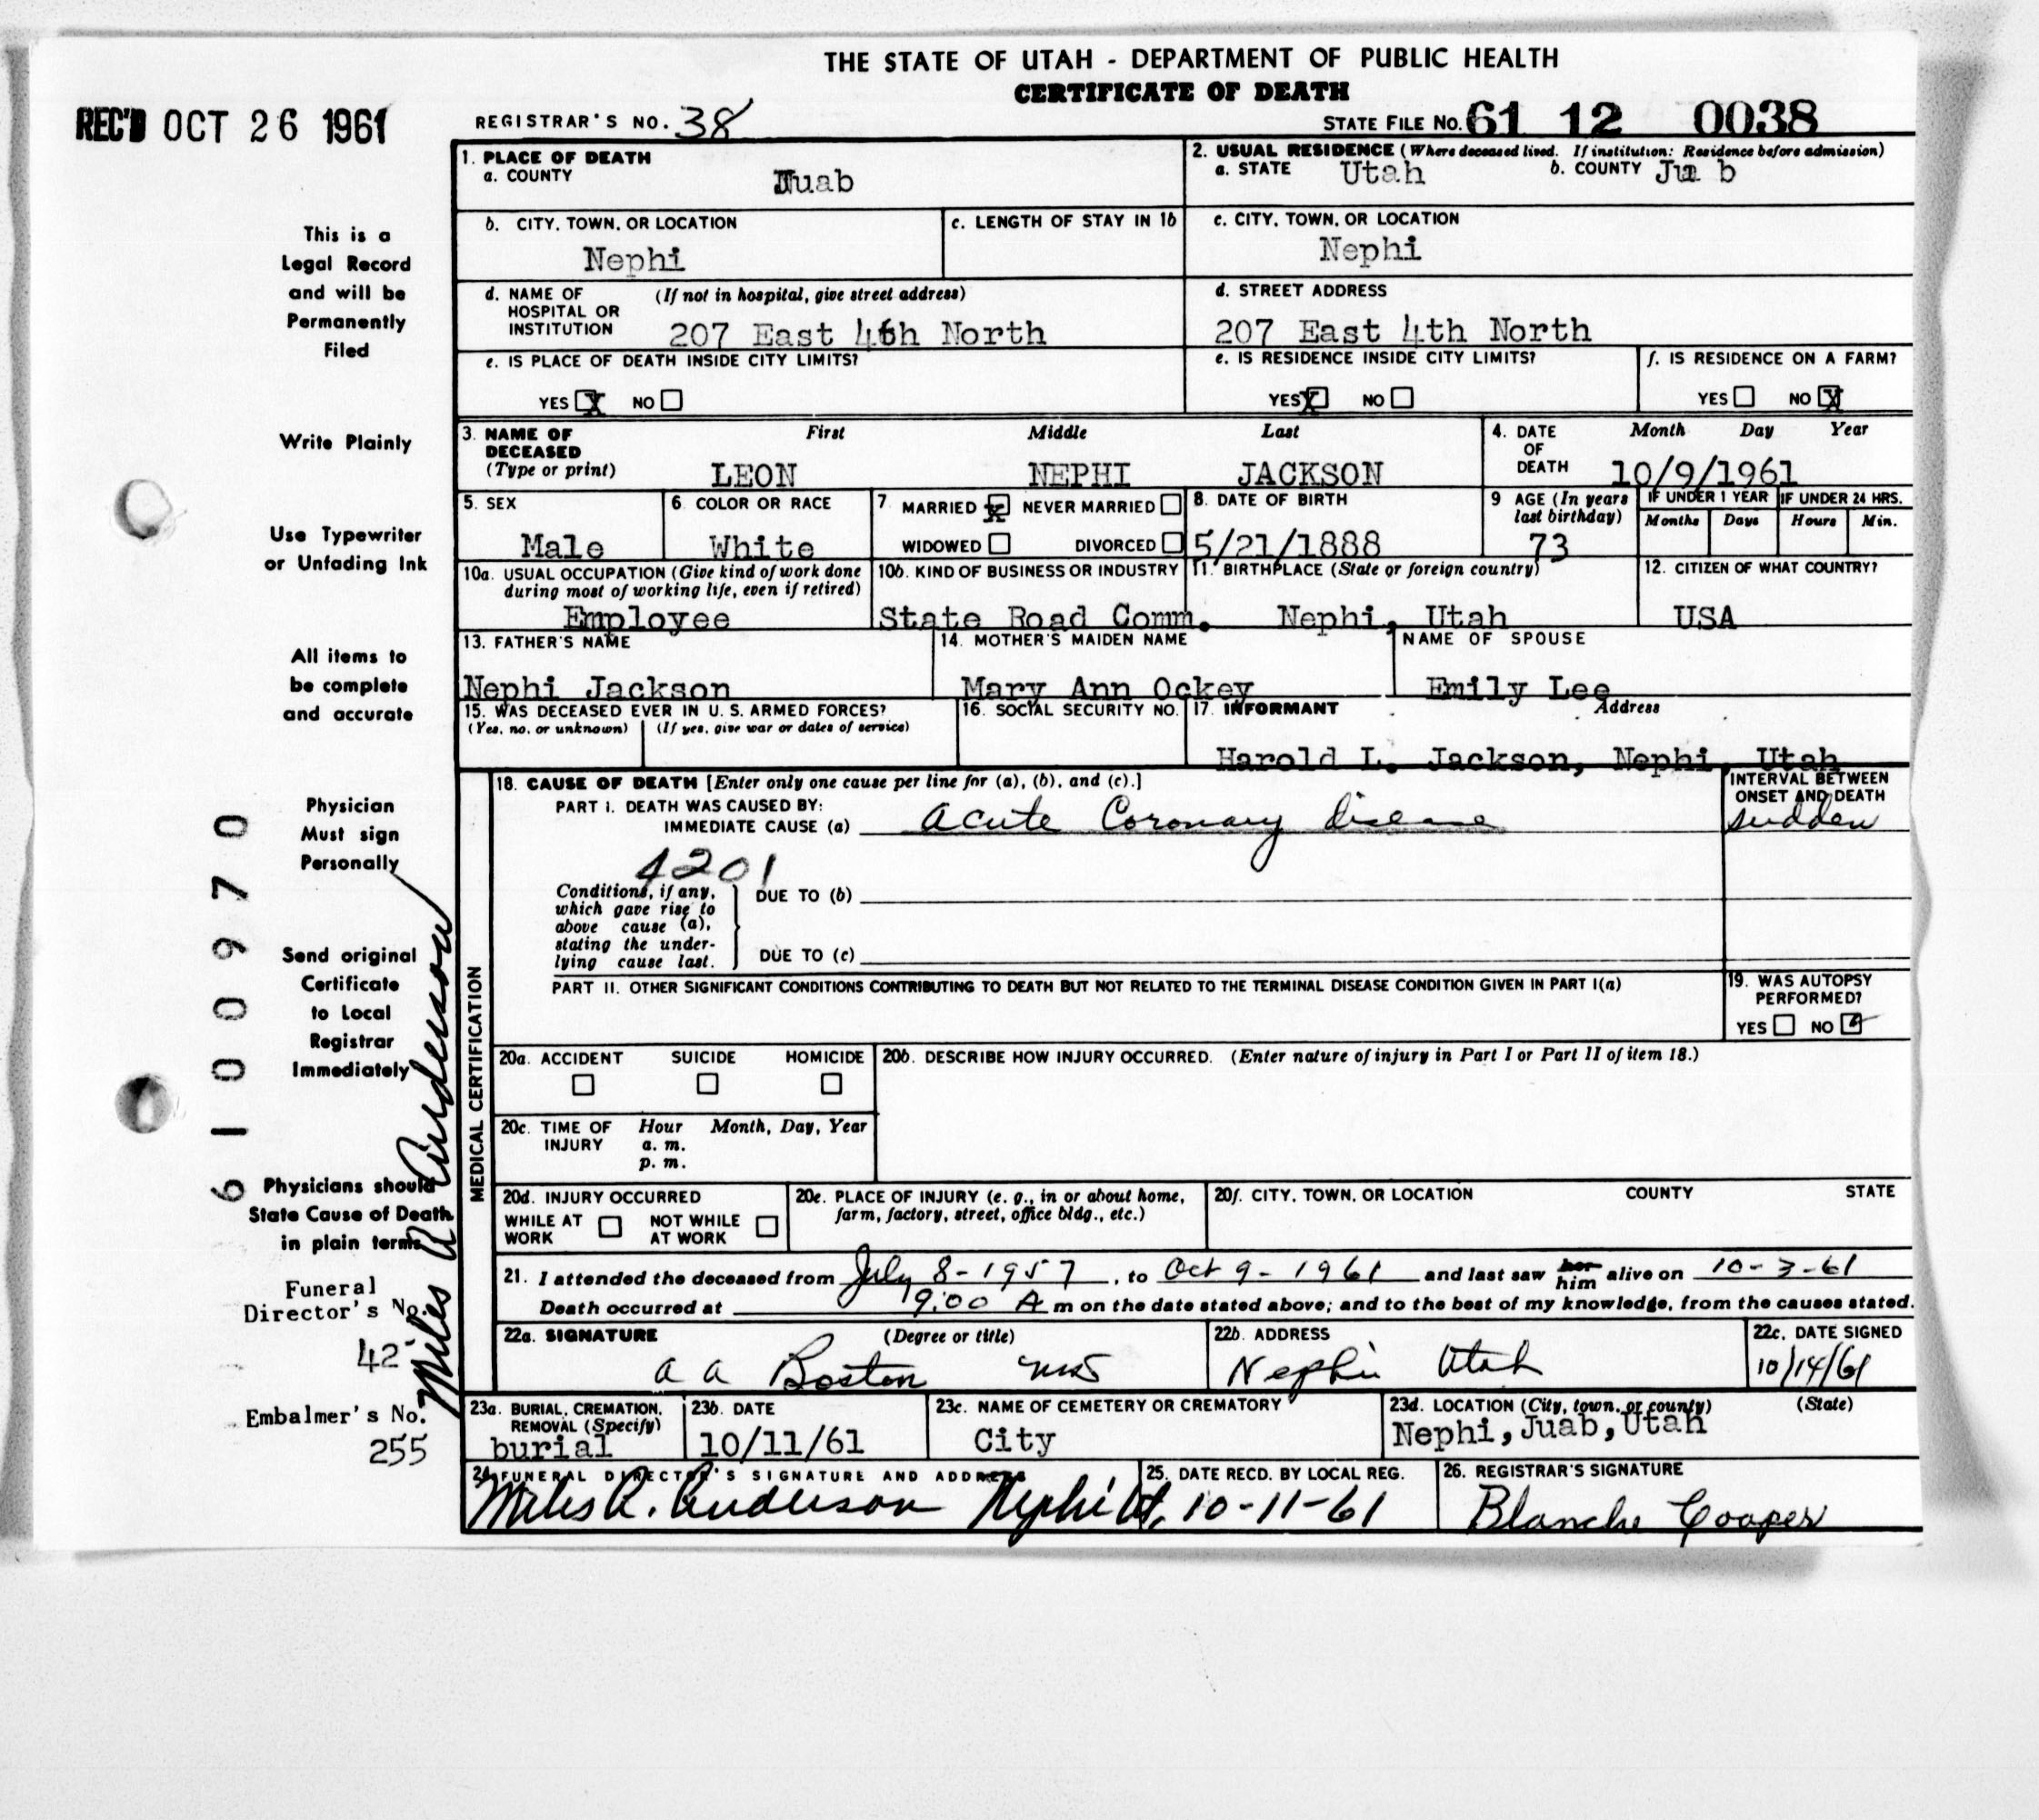 THE STATE OF UTAH - DEPARTMENT OF PUBLIC HEALTH
CERTIFICATE OF DEATH
REC'D OCT 26 1961
REGISTRAR'S NO. 38
STATE FILE NO. 61 12 0038
This is a
Legal Record
and will be
Permanently
Filed
Write Plainly
Use Typewriter
or Unfading Ink
All items to
be complete
and accurate
Physician
Must sign
Personally
Send original
Certificate
to Local
Registrar
Immediately
Physicians should
State Cause of Death
in plain terms
Funeral
Director's No.
42
Embalmer's No.
255
6100970
Miles R Anderson
1. PLACE OF DEATH
a. COUNTY Juab
2. USUAL RESIDENCE (Where deceased lived. If institution: Residence before admission)
a. STATE Utah b. COUNTY Jua b
b. CITY, TOWN, OR LOCATION
Nephi
c. LENGTH OF STAY IN 1b
c. CITY, TOWN, OR LOCATION
Nephi
d. NAME OF (If not in hospital, give street address)
HOSPITAL OR
INSTITUTION 207 East 4th North
d. STREET ADDRESS
207 East 4th North
e. IS PLACE OF DEATH INSIDE CITY LIMITS?
YES X NO
e. IS RESIDENCE INSIDE CITY LIMITS?
YES X NO
f. IS RESIDENCE ON A FARM?
YES NO X
3. NAME OF First Middle Last
DECEASED
(Type or print) LEON NEPHI JACKSON
4. DATE Month Day Year
OF
DEATH 10/9/1961
5. SEX
Male
6. COLOR OR RACE
White
7. MARRIED X NEVER MARRIED
WIDOWED DIVORCED
8. DATE OF BIRTH
5/21/1888
9 AGE (In years
last birthday)
73
IF UNDER 1 YEAR IF UNDER 24 HRS.
Months Days Hours Min.
10a. USUAL OCCUPATION (Give kind of work done
during most of working life, even if retired)
Employee
10b. KIND OF BUSINESS OR INDUSTRY
State Road Comm.
11. BIRTHPLACE (State or foreign country)
Nephi, Utah
12. CITIZEN OF WHAT COUNTRY?
USA
13. FATHER'S NAME
Nephi Jackson
14. MOTHER'S MAIDEN NAME
Mary Ann Ockey
NAME OF SPOUSE
Emily Lee
15. WAS DECEASED EVER IN U. S. ARMED FORCES?
(Yes, no. or unknown) (If yes, give war or dates of service)
16. SOCIAL SECURITY NO.
17. INFORMANT Address
Harold L. Jackson, Nephi, Utah
MEDICAL CERTIFICATION
18. CAUSE OF DEATH [Enter only one cause per line for (a), (b), and (c).]
PART I. DEATH WAS CAUSED BY:
IMMEDIATE CAUSE (a) Acute Coronary disease
INTERVAL BETWEEN
ONSET AND DEATH
sudden
4201
Conditions, if any,
which gave rise to
above cause (a),
stating the under-
lying cause last.
DUE TO (b)
DUE TO (c)
PART II. OTHER SIGNIFICANT CONDITIONS CONTRIBUTING TO DEATH BUT NOT RELATED TO THE TERMINAL DISEASE CONDITION GIVEN IN PART I(a)
19. WAS AUTOPSY
PERFORMED?
YES NO
20a. ACCIDENT SUICIDE HOMICIDE
20b. DESCRIBE HOW INJURY OCCURRED. (Enter nature of injury in Part I or Part II of item 18.)
20c. TIME OF Hour Month, Day, Year
INJURY a. m.
p. m.
20d. INJURY OCCURRED
WHILE AT NOT WHILE
WORK AT WORK
20e. PLACE OF INJURY (e. g., in or about home,
farm, factory, street, office bldg., etc.)
20f. CITY, TOWN, OR LOCATION COUNTY STATE
21. I attended the deceased from July 8-1957, to Oct 9-1961 and last saw her him alive on 10-3-61
Death occurred at 9:00 A m on the date stated above; and to the best of my knowledge, from the causes stated.
22a. SIGNATURE (Degree or title)
A A Boston MD
22b. ADDRESS
Nephi Utah
22c. DATE SIGNED
10/14/61
23a. BURIAL, CREMATION,
REMOVAL (Specify)
burial
23b. DATE
10/11/61
23c. NAME OF CEMETERY OR CREMATORY
City
23d. LOCATION (City, town, or county) (State)
Nephi, Juab, Utah
24. FUNERAL DIRECTOR'S SIGNATURE AND ADDRESS
Miles R. Anderson Nephi Ut.
25. DATE RECD. BY LOCAL REG.
10-11-61
26. REGISTRAR'S SIGNATURE
Blanche Cooper